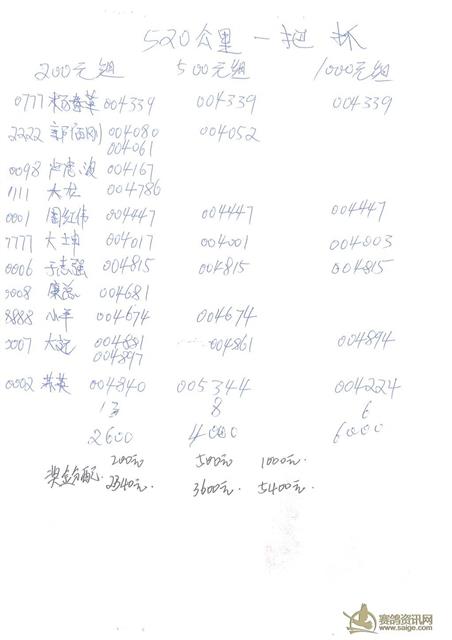 520公里一把抓
200元组 500元组 1000元组
0777 004339 004339 004339
2222 004080 004052
004061
0098 004167
1111 大龙 004786
0001 周红伟 004447 004447 004447
7777 大坤 004017 004001 004003
0006 于志强 004815 004815 004815
0008 004681
8888 小平 004674 004674
0007 004881 004861 004894
004897
0002 英英 004840 005344 004224
13 8 6
2600 4000 6000
200元 500元 1000元
奖金分配 2340元. 3600元. 5400元.
赛鸽资讯网
www.saige.com